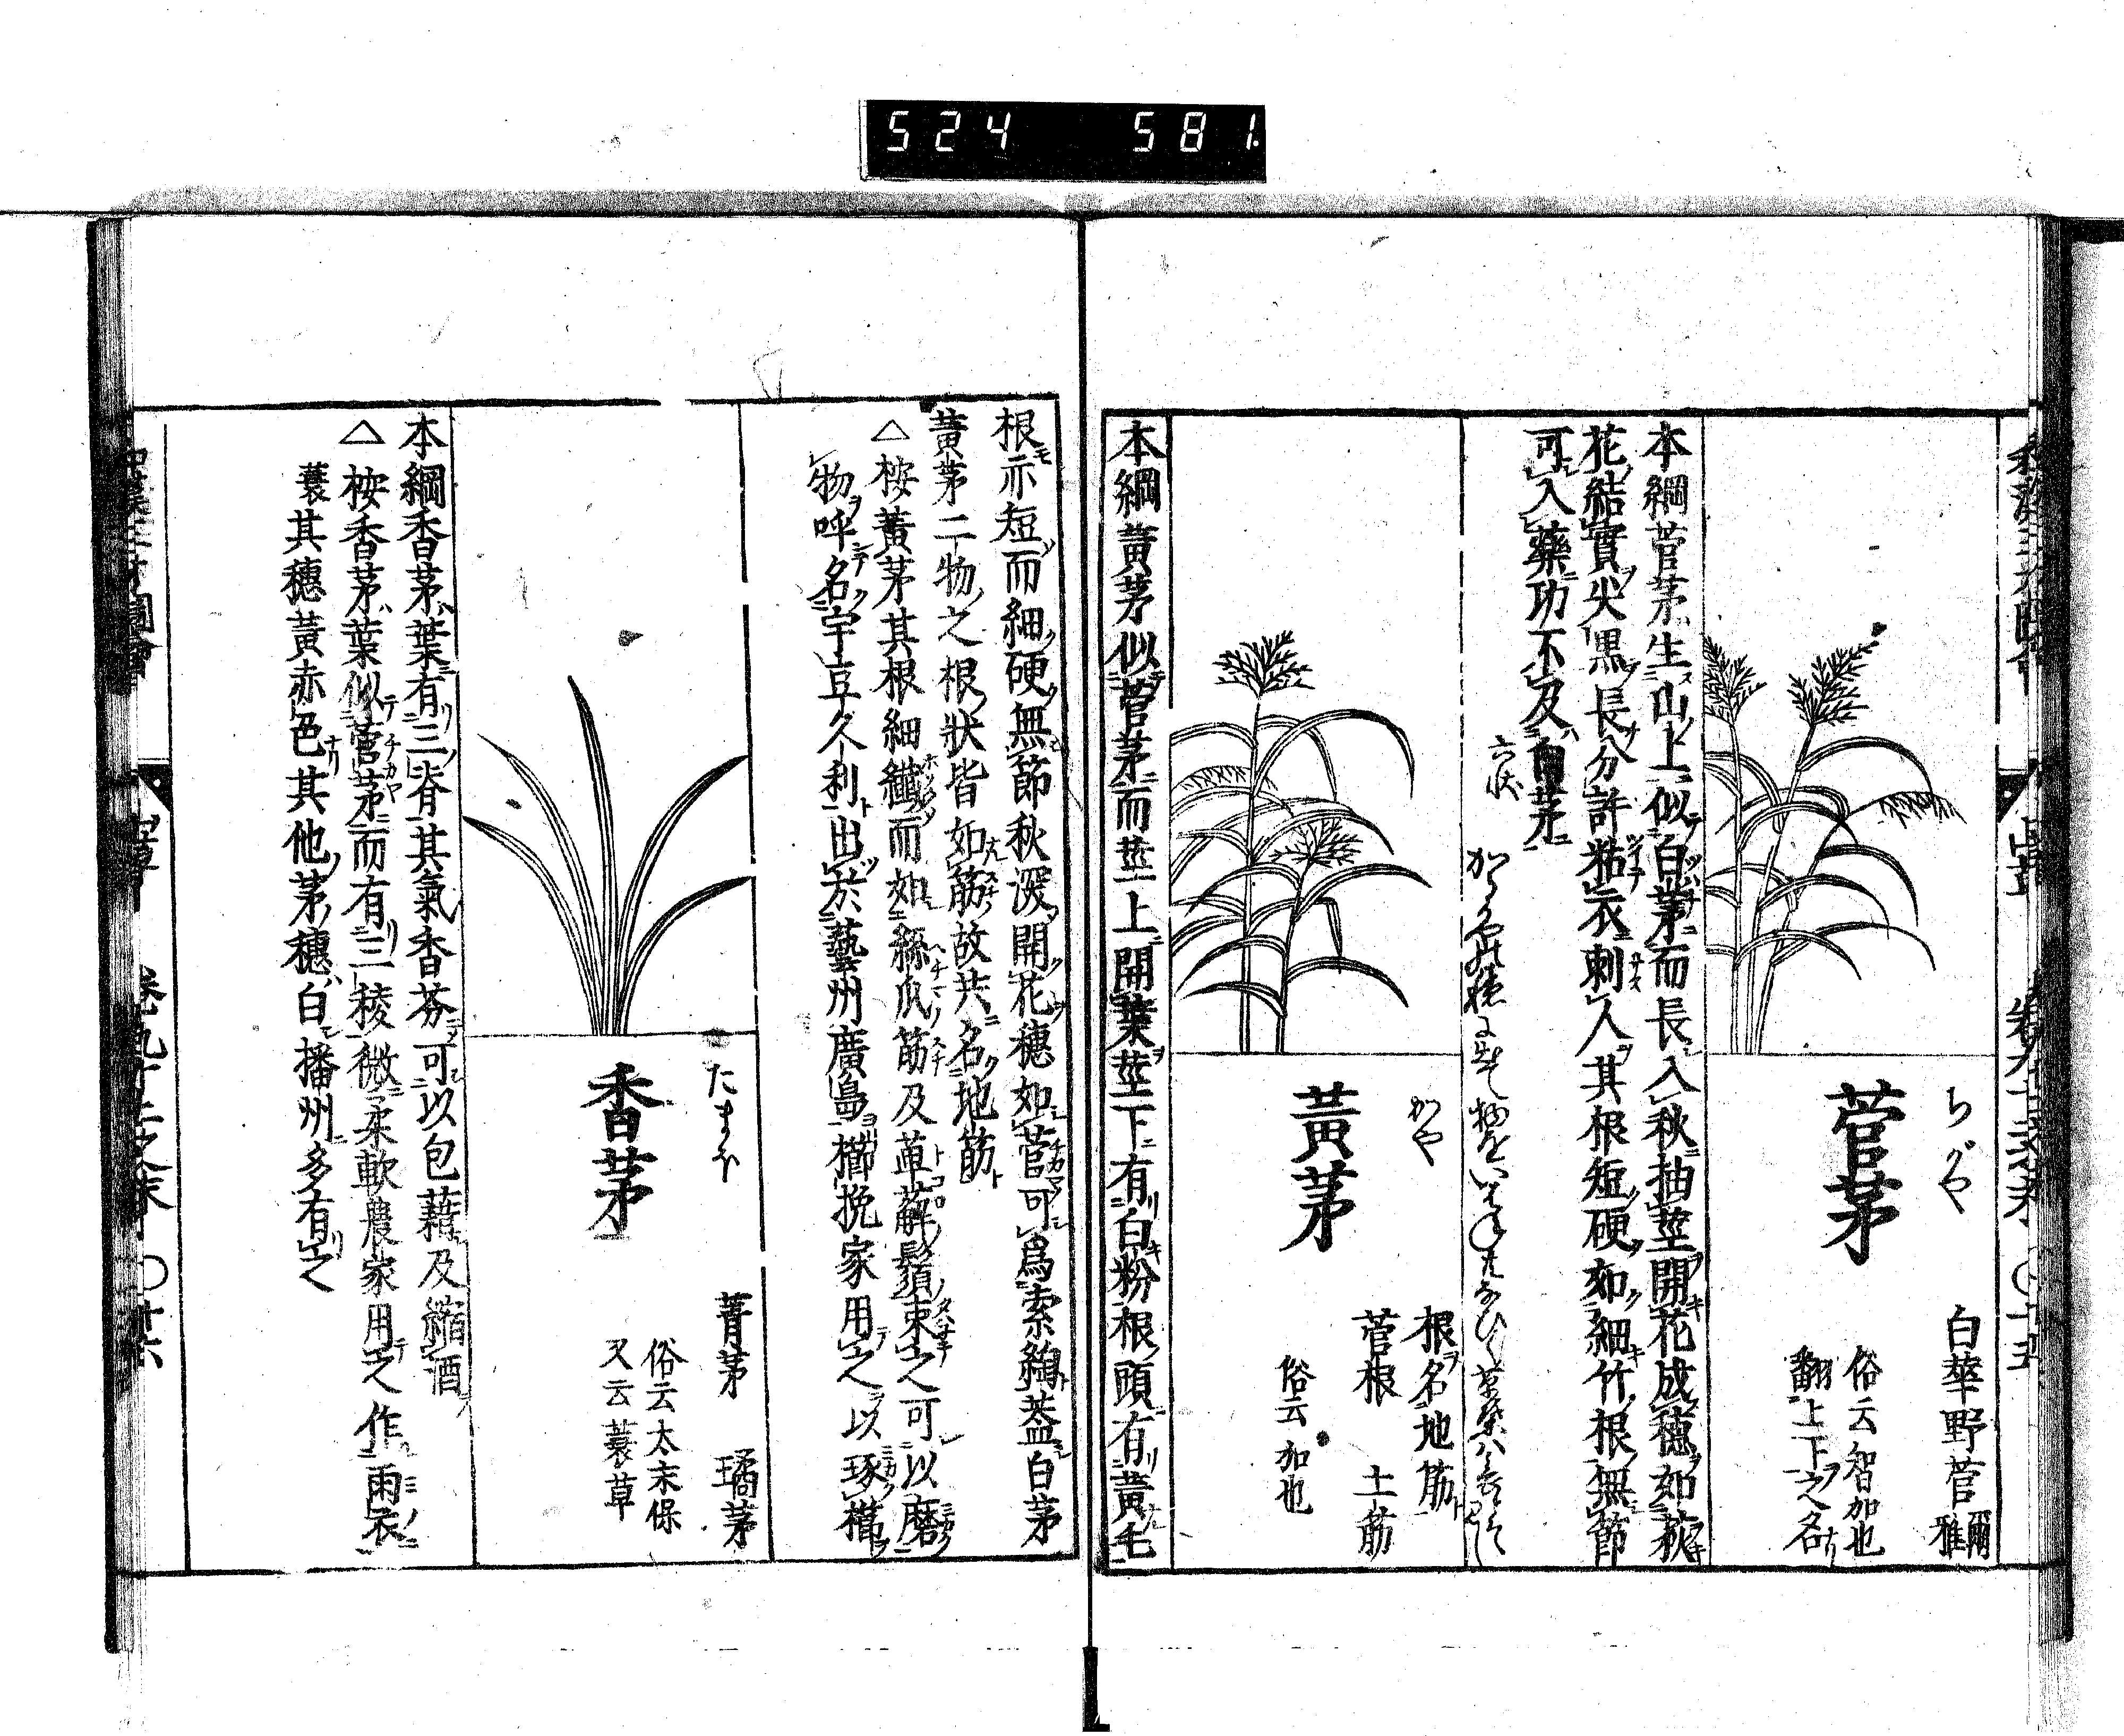 524 581
ちがや
菅茅
白華野菅 爾雅
俗云智加也
翻上下之名
本綱菅茅生山上似白茅而長入秋抽莖開花成穗如荻
花結實尖黒長分許粘衣刺人其根短硬如細竹根無節
可入藥功不及白茅
六帖
かや
黃茅
根名地筋
菅根 土筋
俗云加也
本綱黃茅似菅茅而莖上開葉莖下有白粉根頭有黃毛
根亦短而細硬無節秋深開花穗如菅可爲索綯蓋白茅
黃茅二物之根狀皆如筋故共名地筋
△桉黃茅其根細纖而如絲瓜筋及萆薢鬚束之可以磨
物呼名宇豆久利出於藝州廣島櫛挽家用之以琢櫛
たまほ
香茅
菁茅 璚茅
俗云太末保
又云蓑草
本綱香茅葉有三脊其氣香芬可以包藉及縮酒
△桉香茅葉似菅茅而有三稜微柔軟農家用之作雨衣
蓑其穗黃赤色其他茅穗白播州多有之